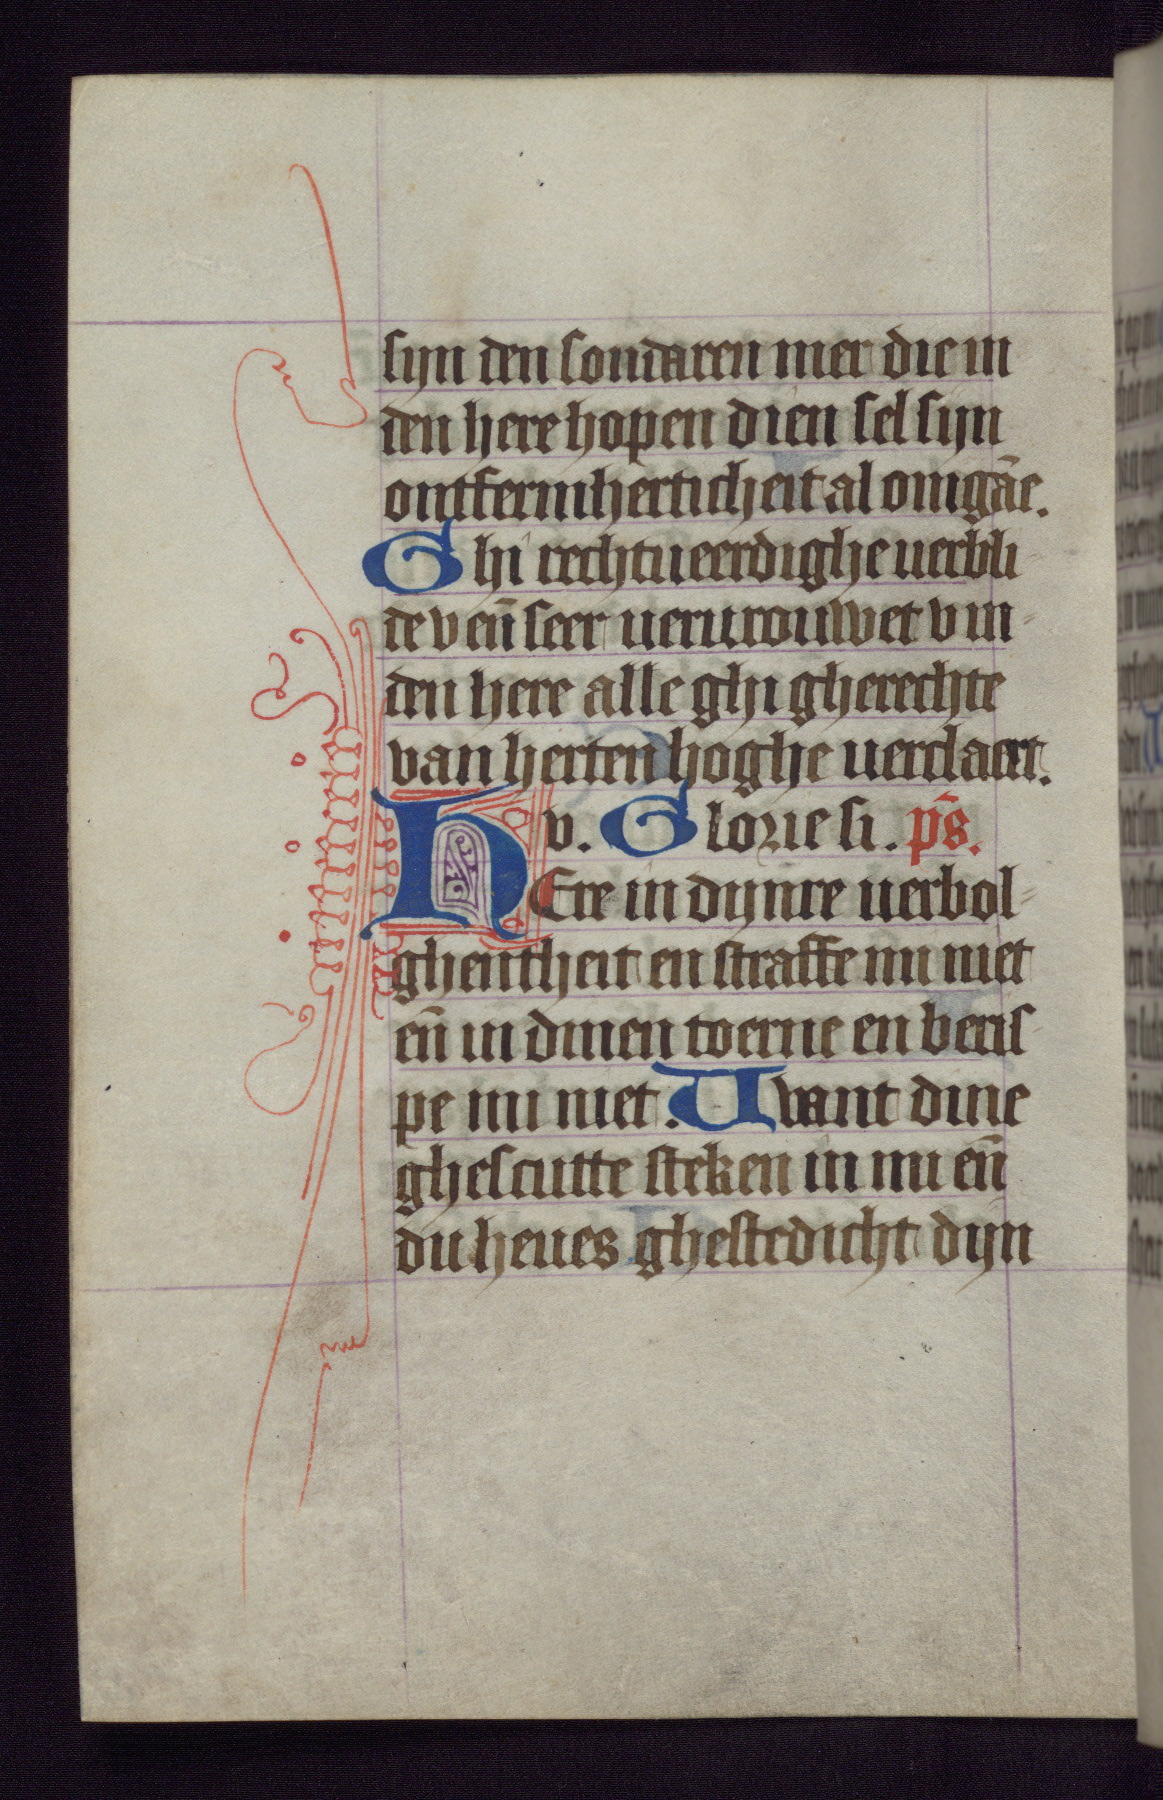 sijn den sondaren mer die in
den here hopen dien sel sijn
ontfermherticheit al omgāe.
Ghi rechtueerdighe uerbli
de v en̄ seer uerurouwet v in-
den here alle ghi gherechte
van herten hoghe uerclaert.
v. Glorie si. ps̄.
HEre in dijnre uerbol-
ghentheit en straffe mi niet
en̄ in dinen toerne en beris-
pe mi niet. Uwant dine
ghescutte steken in mi en̄
du heues ghestedicht dijn